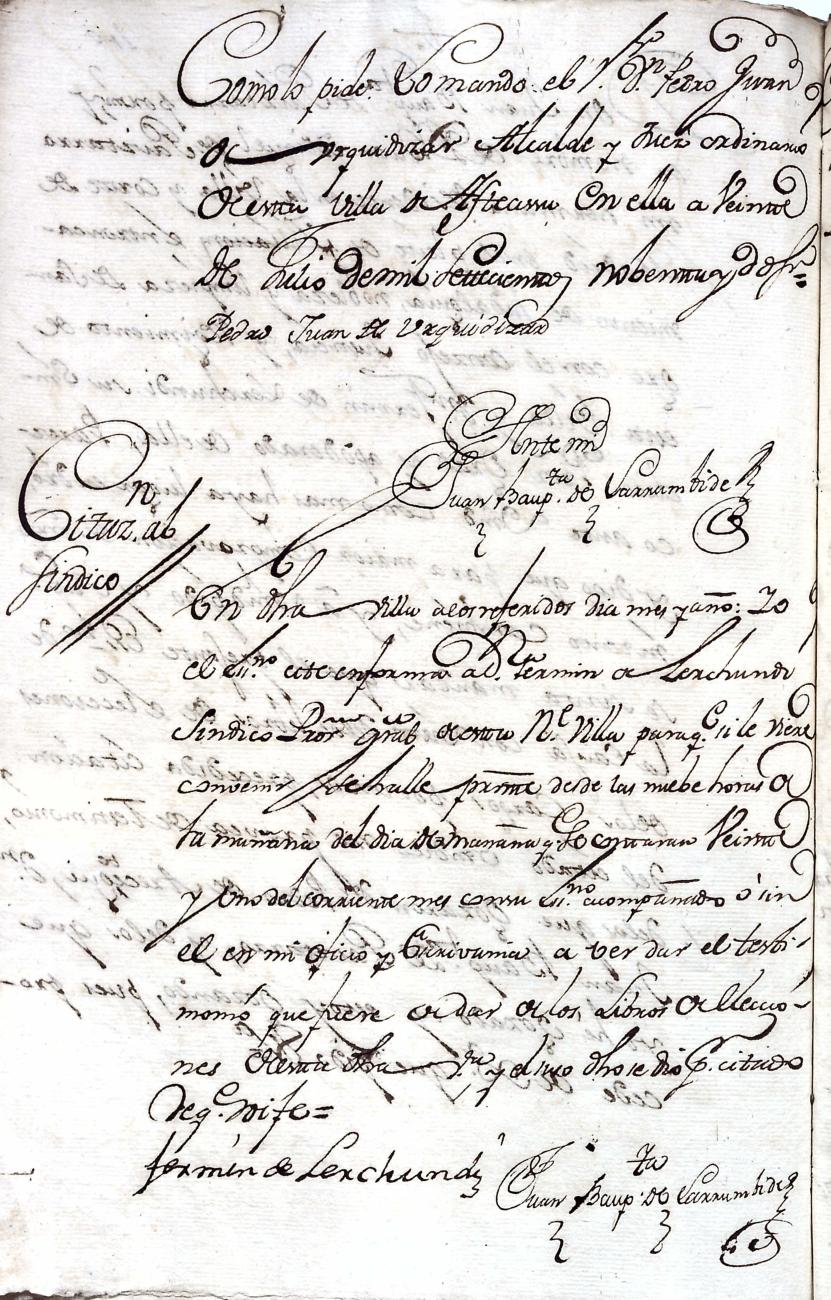 Como lo pide. Lo mando el S.or Dn. Pedro Juan
de Urquidizar Alcalde y Juez ordinario
de esta Villa de Asteasu En ella a Veinte
de Julio de mil Settecientos nobenta y dos fr.=
Pedro Juan de Urquidizar
Ante mi
Juan Baup.ta de Larrumbide
Citaz.n al
Sindico
En dha villa a los referidos dia mes y año: Yo
el Ss.no cite en forma a D.n Fermin de Lerchundi
Sindico Pror. gral de esta N.e Villa para q.e si le viere
convenir se halle pnte desde las nuebe horas de
la mañana del dia de mañana q.e se contaran Veinte
y Uno del corriente mes con su Ss.no acompañado ó sin
el en mi oficio y Escrivania a ver dar el testi-
monio que fuere de dar de los Libros de Elecció-
nes de esta dha V.a y el suso dho se dio p.r citado
de q.e doi fe=
Fermin de Lerchundi
Juan Baup.ta de Larrumbide